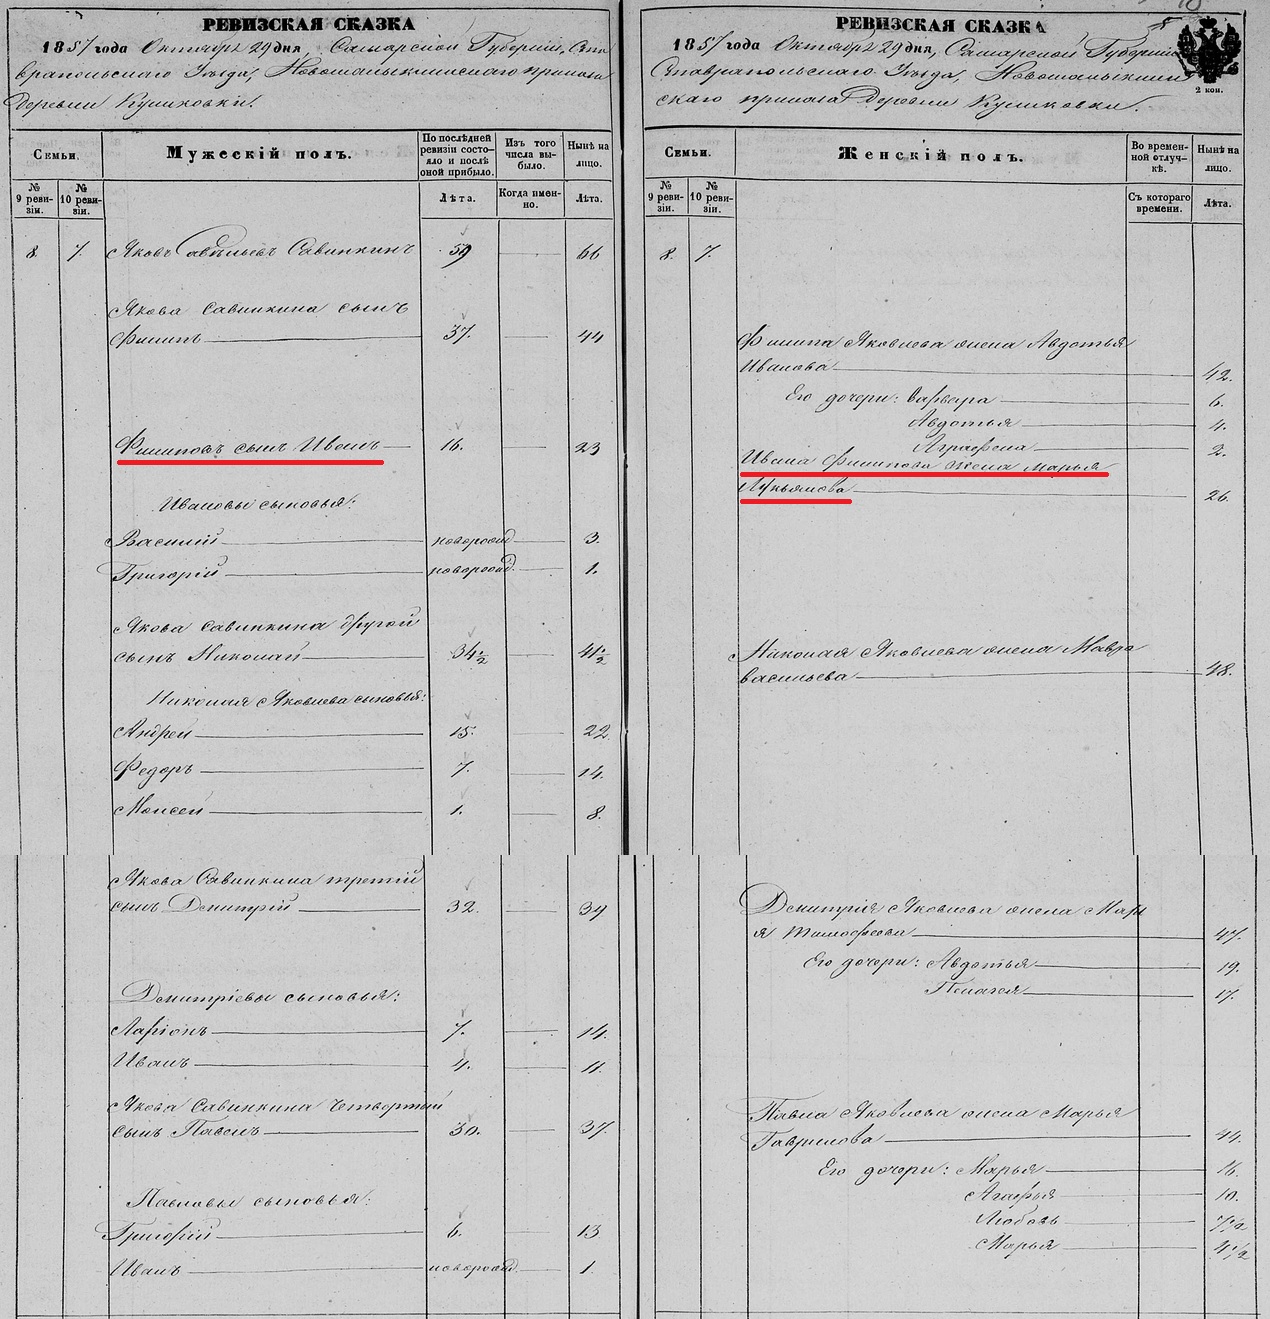 РЕВИЗСКАЯ СКАЗКА
1857 года Октября 29 дня, Самарской Губерніи, Ста
вропольскаго Уѣзда, Новомалыклинскаго приказа
Деревни Куликовки.
Семьи.
Мужескій полъ.
По послѣдней ревизіи состояло и послѣ оной прибыло.
Изъ того числа выбыло.
Нынѣ на лицо.
№ 9 ревизіи.
№ 10 ревизіи.
Лѣта.
Когда именно.
Лѣта.
8 7. Яковъ Савинкинъ 59 66
Якова Савинкина сынъ
Филипъ 37. 44
Филиповъ сынъ Иванъ 16. 23
Ивановы сыновья:
Василий новорожд 3.
Григорій новорожд. 1.
Якова Савинкина другой
сынъ Николай 34 1/2 41 1/2
Николая Яковлева сыновья:
Андрей 15. 22
Федоръ 7. 14.
Моисей 1. 8.
Якова Савинкина третій
сынъ Дмитрій 32. 39
Дмитріевы сыновья:
Ларіонъ 7. 14.
Иванъ 4. 11.
Якова Савинкина Четвертый
сынъ Павелъ 30. 37.
Павловы сыновья:
Григорій 6. 13
Иванъ новорожд. 1.
РЕВИЗСКАЯ СКАЗКА
1857 года Октября 29 дня, Самарской Губерніи
Ставропольскаго Уѣзда, Новомалыклин
скаго приказа Деревни Куликовки.
2 коп.
Семьи.
Женскій полъ.
Во временной отлучкѣ.
Нынѣ на лицо.
№ 9 ревизіи.
№ 10 ревизіи.
Съ котораго времени.
Лѣта.
8. 7.
Филипа Яковлева жена Авдотья
Иванова 42.
Его дочери: Варвара 6.
Авдотья 4.
Аграфена 2.
Ивана Филипова жена Марья
Лукьянова 26.
Николая Яковлева жена Мавра
Васильева 48.
Дмитрія Яковлева жена Марь
я Тимофеева 47.
Его дочери: Авдотья 19.
Пелагея 17.
Павла Яковлева жена Марья
Гаврилова 44.
Его дочери: Марья 16.
Агафья 10.
Любовь 7 1/2
Марья 4 1/2